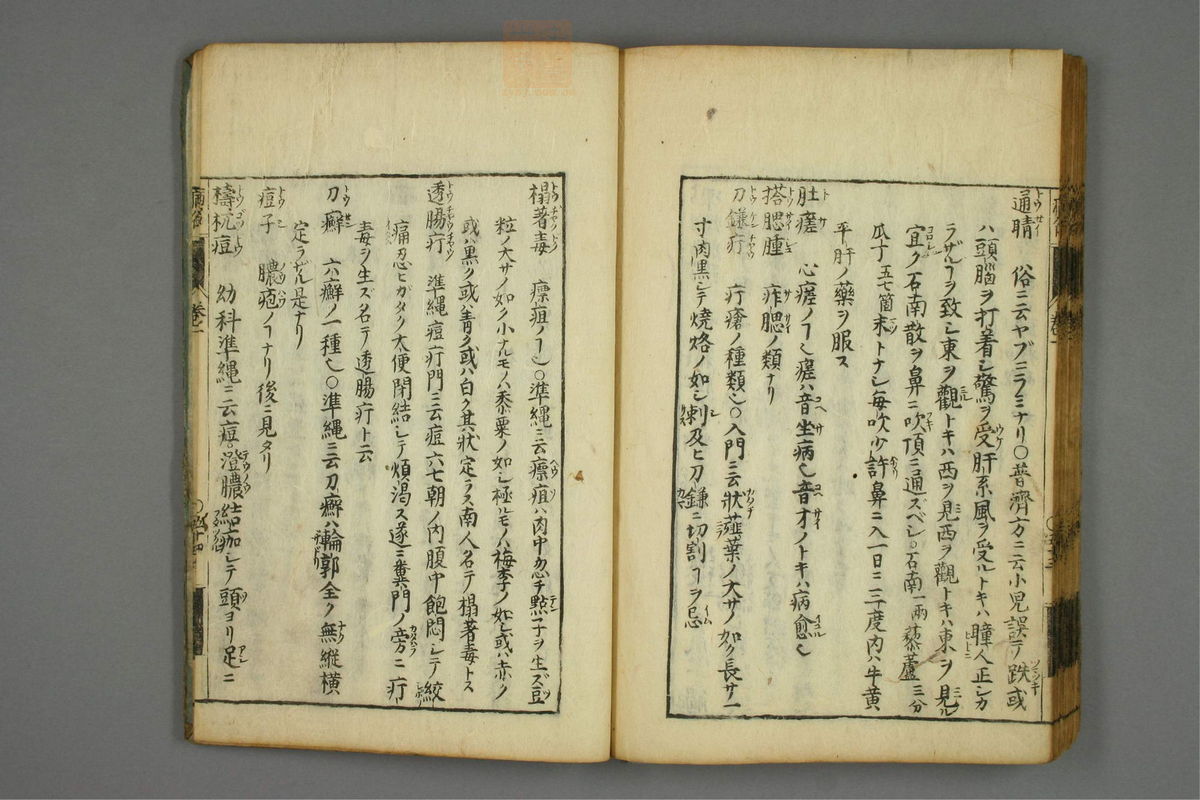 通睛 俗ニ云ヤブニラミナリ○普濟方ニ云小児誤テ跌或
ハ頭腦ヲ打着シ驚ヲ受肝系風ヲ受ルトキハ瞳人正シカ
ラザルヿヲ致シ東ヲ觀トキハ西ヲ見西ヲ觀トキハ東ヲ見ル
宜ク石南散ヲ鼻ニ吹頂ニ通ズベシ○石南一兩藜蘆三分
瓜丁五七箇末トナシ毎吹少許鼻ニ入一日ニ三度内ハ牛黄
平肝ノ藥ヲ服ス
肚瘥 心瘥ノヿ也瘥ハ音坐病也音才ノトキハ病愈也
搭腮腫 痄腮ノ類ナリ
刀鎌疔 疔瘡ノ種類也○入門ニ云狀薤葉ノ大サノ如ク長サ一
寸肉黒シテ燒烙ノ如シ刺及ヒ刀鎌ニ切割ヿヲ忌
榻著毒 瘭疽ノヿ也○準縄ニ云瘭疽ハ肉中忽チ點子ヲ生ズ豆
粒ノ大サノ如ク小ナルモノハ黍粟ノ如シ極ルモノハ梅李ノ如シ或ハ赤ク
或ハ黒ク或ハ青ク或ハ白ク其狀定ラス南人名テ榻著毒トス
透腸疔 準縄痘疔門ニ云痘六七朝ノ内腹中飽悶シテ絞
痛忍ヒガタク大便閉結シテ煩渇ス遂ニ糞門ノ旁ニ疔
毒ヲ生ズ名テ透腸疔ト云
刀癬 六癬ノ一種也○準縄ニ云刀癬ハ輪郭全ク無縦横
定ラザル是ナリ
痘子 膿疱ノヿナリ後ニ見タリ
檮杌痘 幼科準縄ニ云痘澄膿結痂シテ頭ヨリ足ニ
卷二